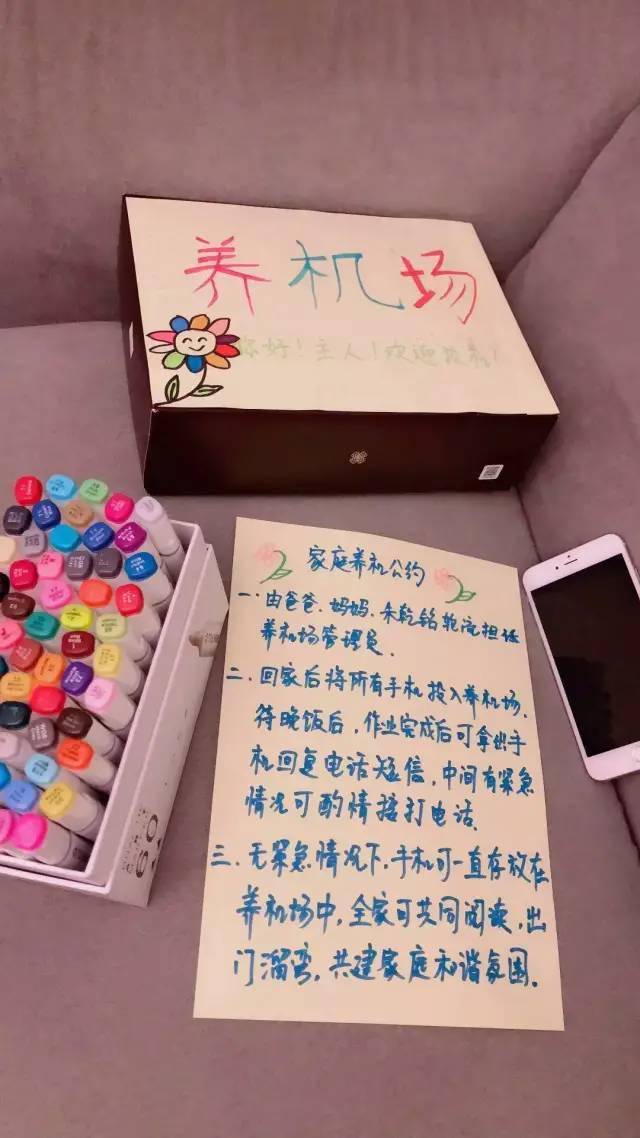 养机场
你好！主人！欢迎投我！
家庭养机公约
一、由爸爸、妈妈、朱乾铭轮流担任
养机场管理员。
二、回家后将所有手机投入养机场，
待晚饭后，作业完成后可拿出手
机回复电话短信，中间有紧急
情况可酌情接打电话。
三、无紧急情况下，手机可一直存放在
养机场中，全家可共同阅读，出
门溜弯，共建家庭和谐氛围。